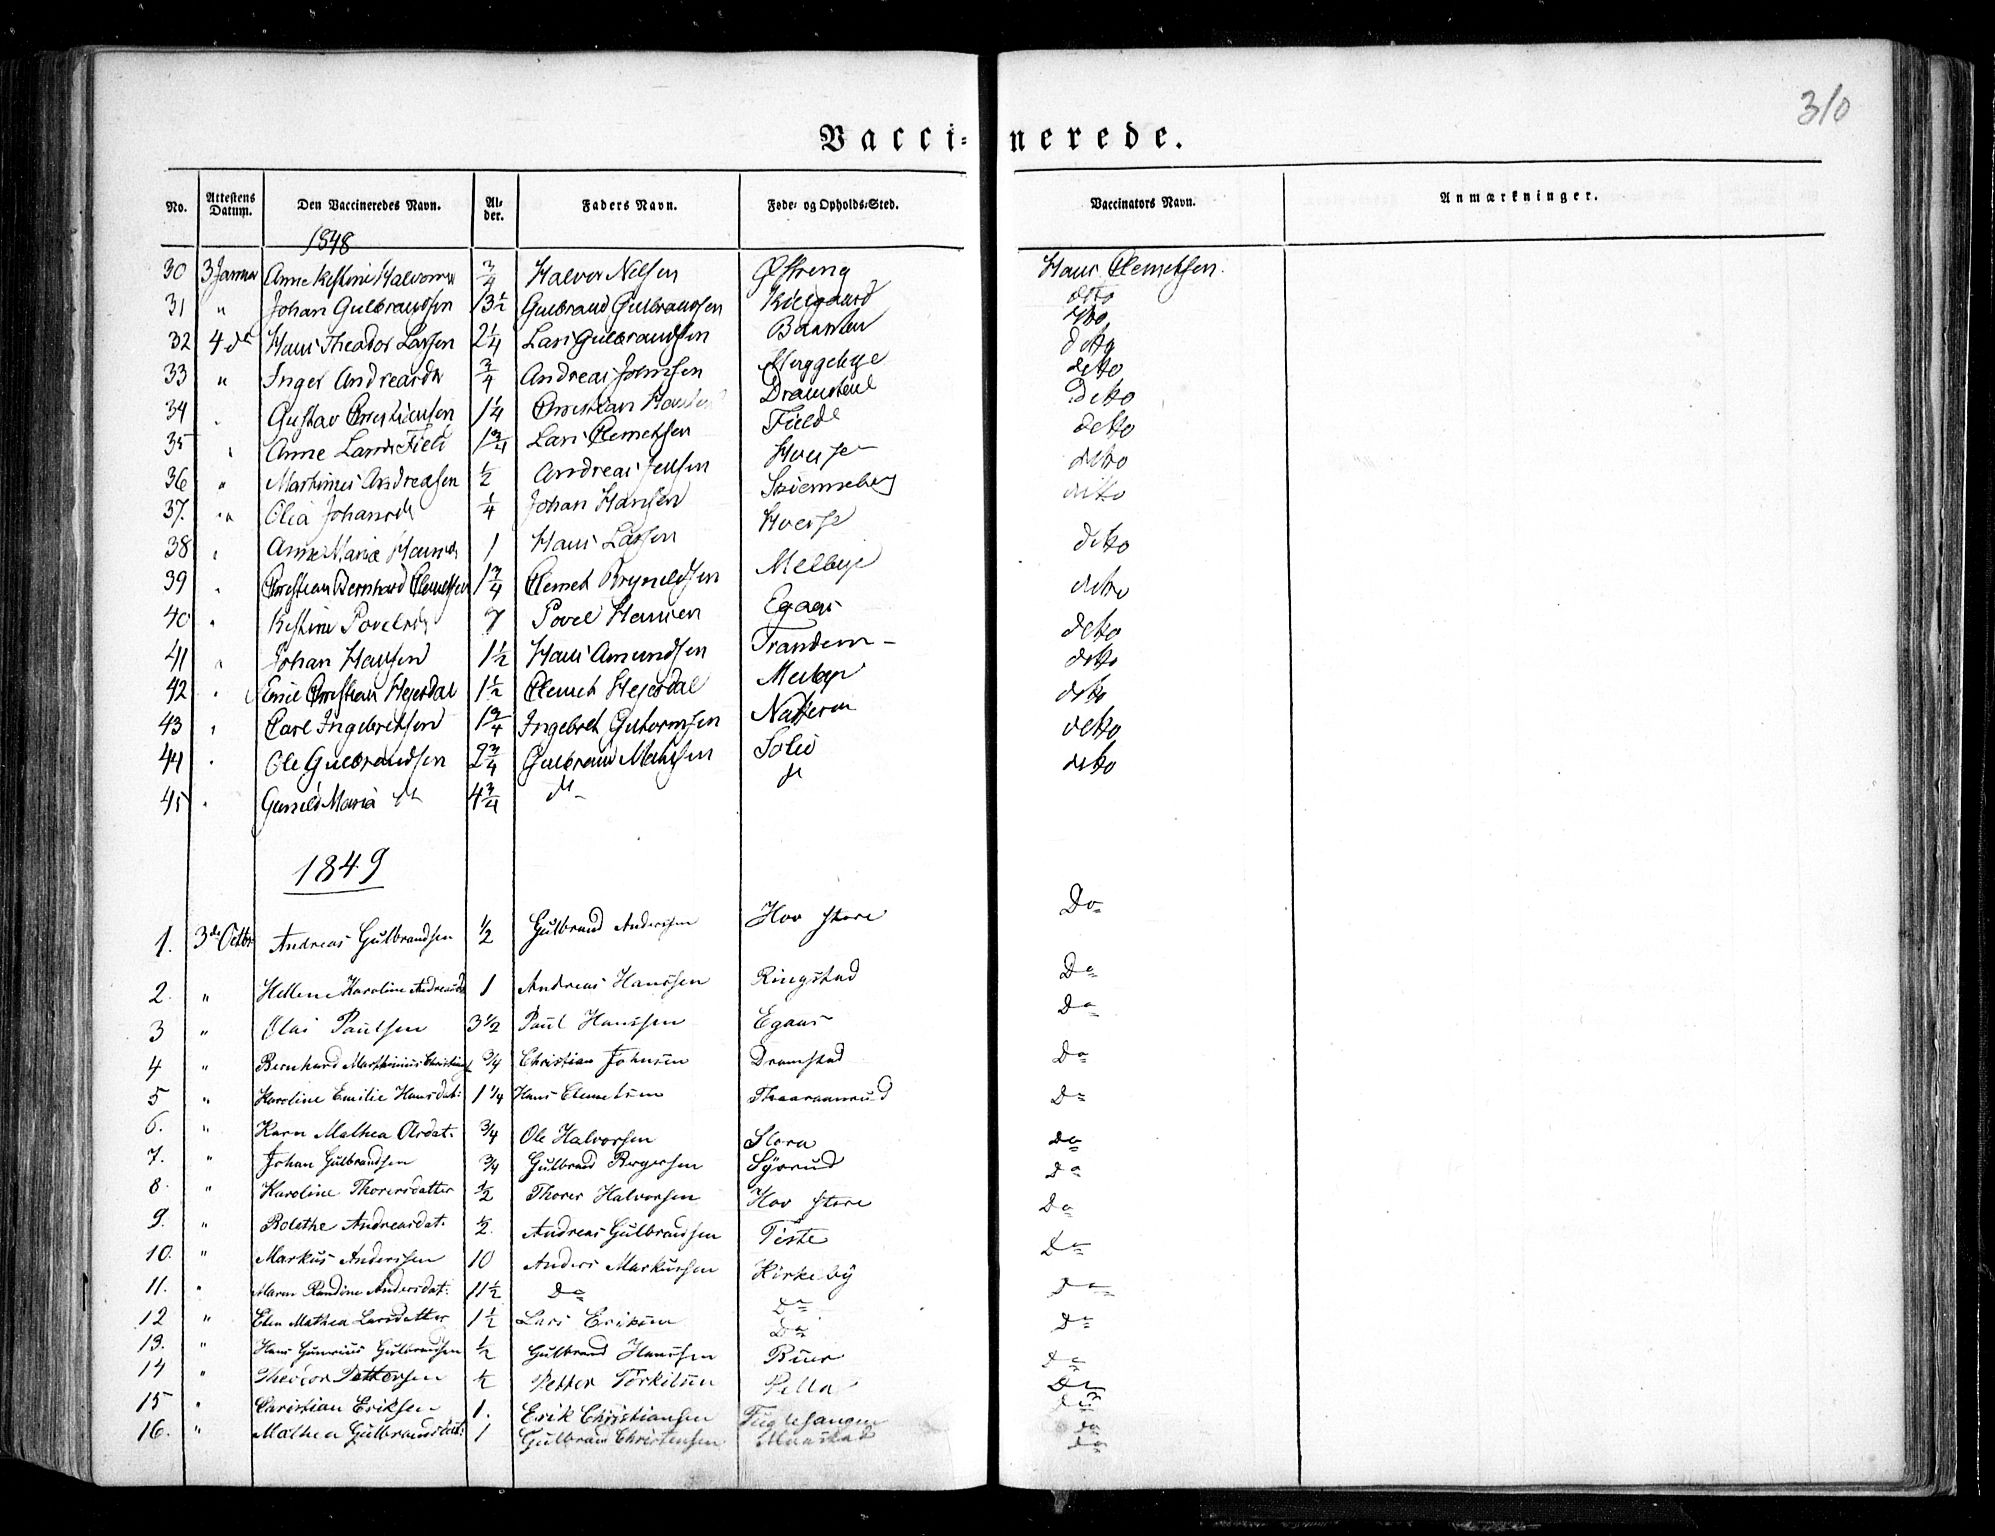 310
Vacci- nerede.
No. Attestens Datum. Den Vaccineredes Navn. Al- der. Faders Navn. Føde- og Opholds-Sted. Vaccinators Navn. Anmærkninger.
1848
30 3 Januar Anne Kistine Halvorsd 3/4 Halvor Nilsen Østreng Hans Clemetsen
31 " Johan Gulbrandsen 13 1/2 Gulbrand Gulbrandsen dito
32 4 dt Hans Theador Larsen 2 1/4 Lars Gulbrandsen dito
33 " Inger Andreasdr 3/4 Andreas Johnsen dito
34 Gustav Christiansen 1 1/4 Christian Dito
35 " Anne Larsdr Field 1 3/4 Lars Clemetsen Field dito
36 " Martinus Andreasen 1/2 Andreas Jensen dito
37. " Olia Johansdr 1/4 Johan Hansen dito
38 " Anne Maria Hansdr 1 Hans Larsen dito
39 Christian Bernhard Clemetsen 1 3/4 Clemet Brynildsen Melbye dito
40 " Kistine Povelsdr 7 Povel Hansen Egaas dito
41 " Johan Hansen 1 1/2 Hans Amundsen Trandem dito
42 " Emil Christian Hejerdal 1 1/2 Clemet Hejerdal Melbye dito
43 " Carl Ingebretsen 1 3/4 Ingebret Guttormsen dito
44 Ole Gulbrandsen 2 3/4 Gulbrand Solie dito
45 Gunild Maria dt 4 3/4 dt dt
1849
1. 3de Octbr Andreas Gulbrandsen 1/2 Gulbrand Anderssen Hov store Do
2. " Hellene Karoline Andreasd 1 Andreas Hanssen Ringstad Do
3 " Olai Paulsen 3 1/2 Paul Hanssen Egaas Do
4 " Bernhard Marthinius Christians 3/4 Christian Johnsen Dramstad Do
5 " Karoline Emilie Hansdat: 1 1/4 Hans Clemetsen Thaaraanrud Do
6. " Karn Mathea Olsdat. 3/4 Ole Halvorsen Do
7. " Johan Gulbrandsen 3/4 Gulbrand Birgersen Do
8. " Karoline Thorersdatter 1/2 Thorer Halvorsen Hov store Do
9. " Bolethe Andreasdat. 1/2. Andreas Gulbrandsen Teste Do
10. " Markus Anderssen 10 Anders Markussen Kirkeby Do
11. " Maren Randine Andersdat. 11 1/2 Do Do Do
12 " Elen Mathea Larsdatter 1 1/2 Lars Eriksen Do Do
13. " Hans Gulbrandsen 1/2 Gulbrand Hanssen Buer Do
14 " Theodor Pettersen 1/2 Petter Torkilsen Pella Do
15 " Christian Eriksen 1. Erik Christiansen Fuglesangen Do
16. " Mathea Gulbrandsdat: 1 Gulbrand Christensen Maastad Do